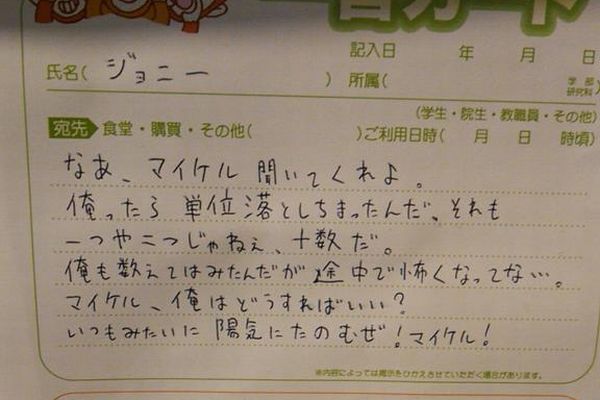 言カード
記入日 年 月 日
氏名( ジョニー ) 所属( 学部 研究科)
(学生・院生・教職員・その他)
宛先 食堂・購買・その他( )ご利用日時( 月 日 時頃)
なあ、マイケル聞いてくれよ。
俺ったら単位落としちまったんだ、それも
一つや二つじゃねぇ、十数だ。
俺も数えてはみたんだが途中で怖くなってな…。
マイケル、俺はどうすればいい?
いつもみたいに陽気にたのむぜ!マイケル!
※内容によっては掲示をひかえさせていただく場合があります。